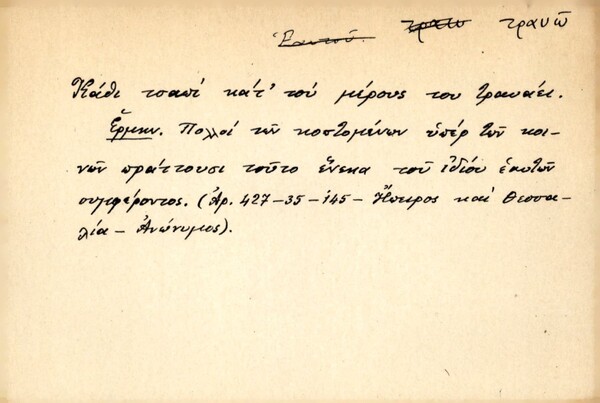 Ἑαυτοῦ. τραυω τραυῶ
Κάθι τσαπί κάτ' τοὺ μέρους του τραυάει.
Ἑρμην. Πολλοί τῶν κοπτομένων ὑπέρ τῶν κοι-
νῶν πράττουσι τοῦτο ἕνεκα τοῦ ἰδίου ἑαυτῶν
συμφέροντος. (Ἀρ. 427-35-145- Ἤπειρος καί Θεσσα-
λία - Ἀνώνυμος).